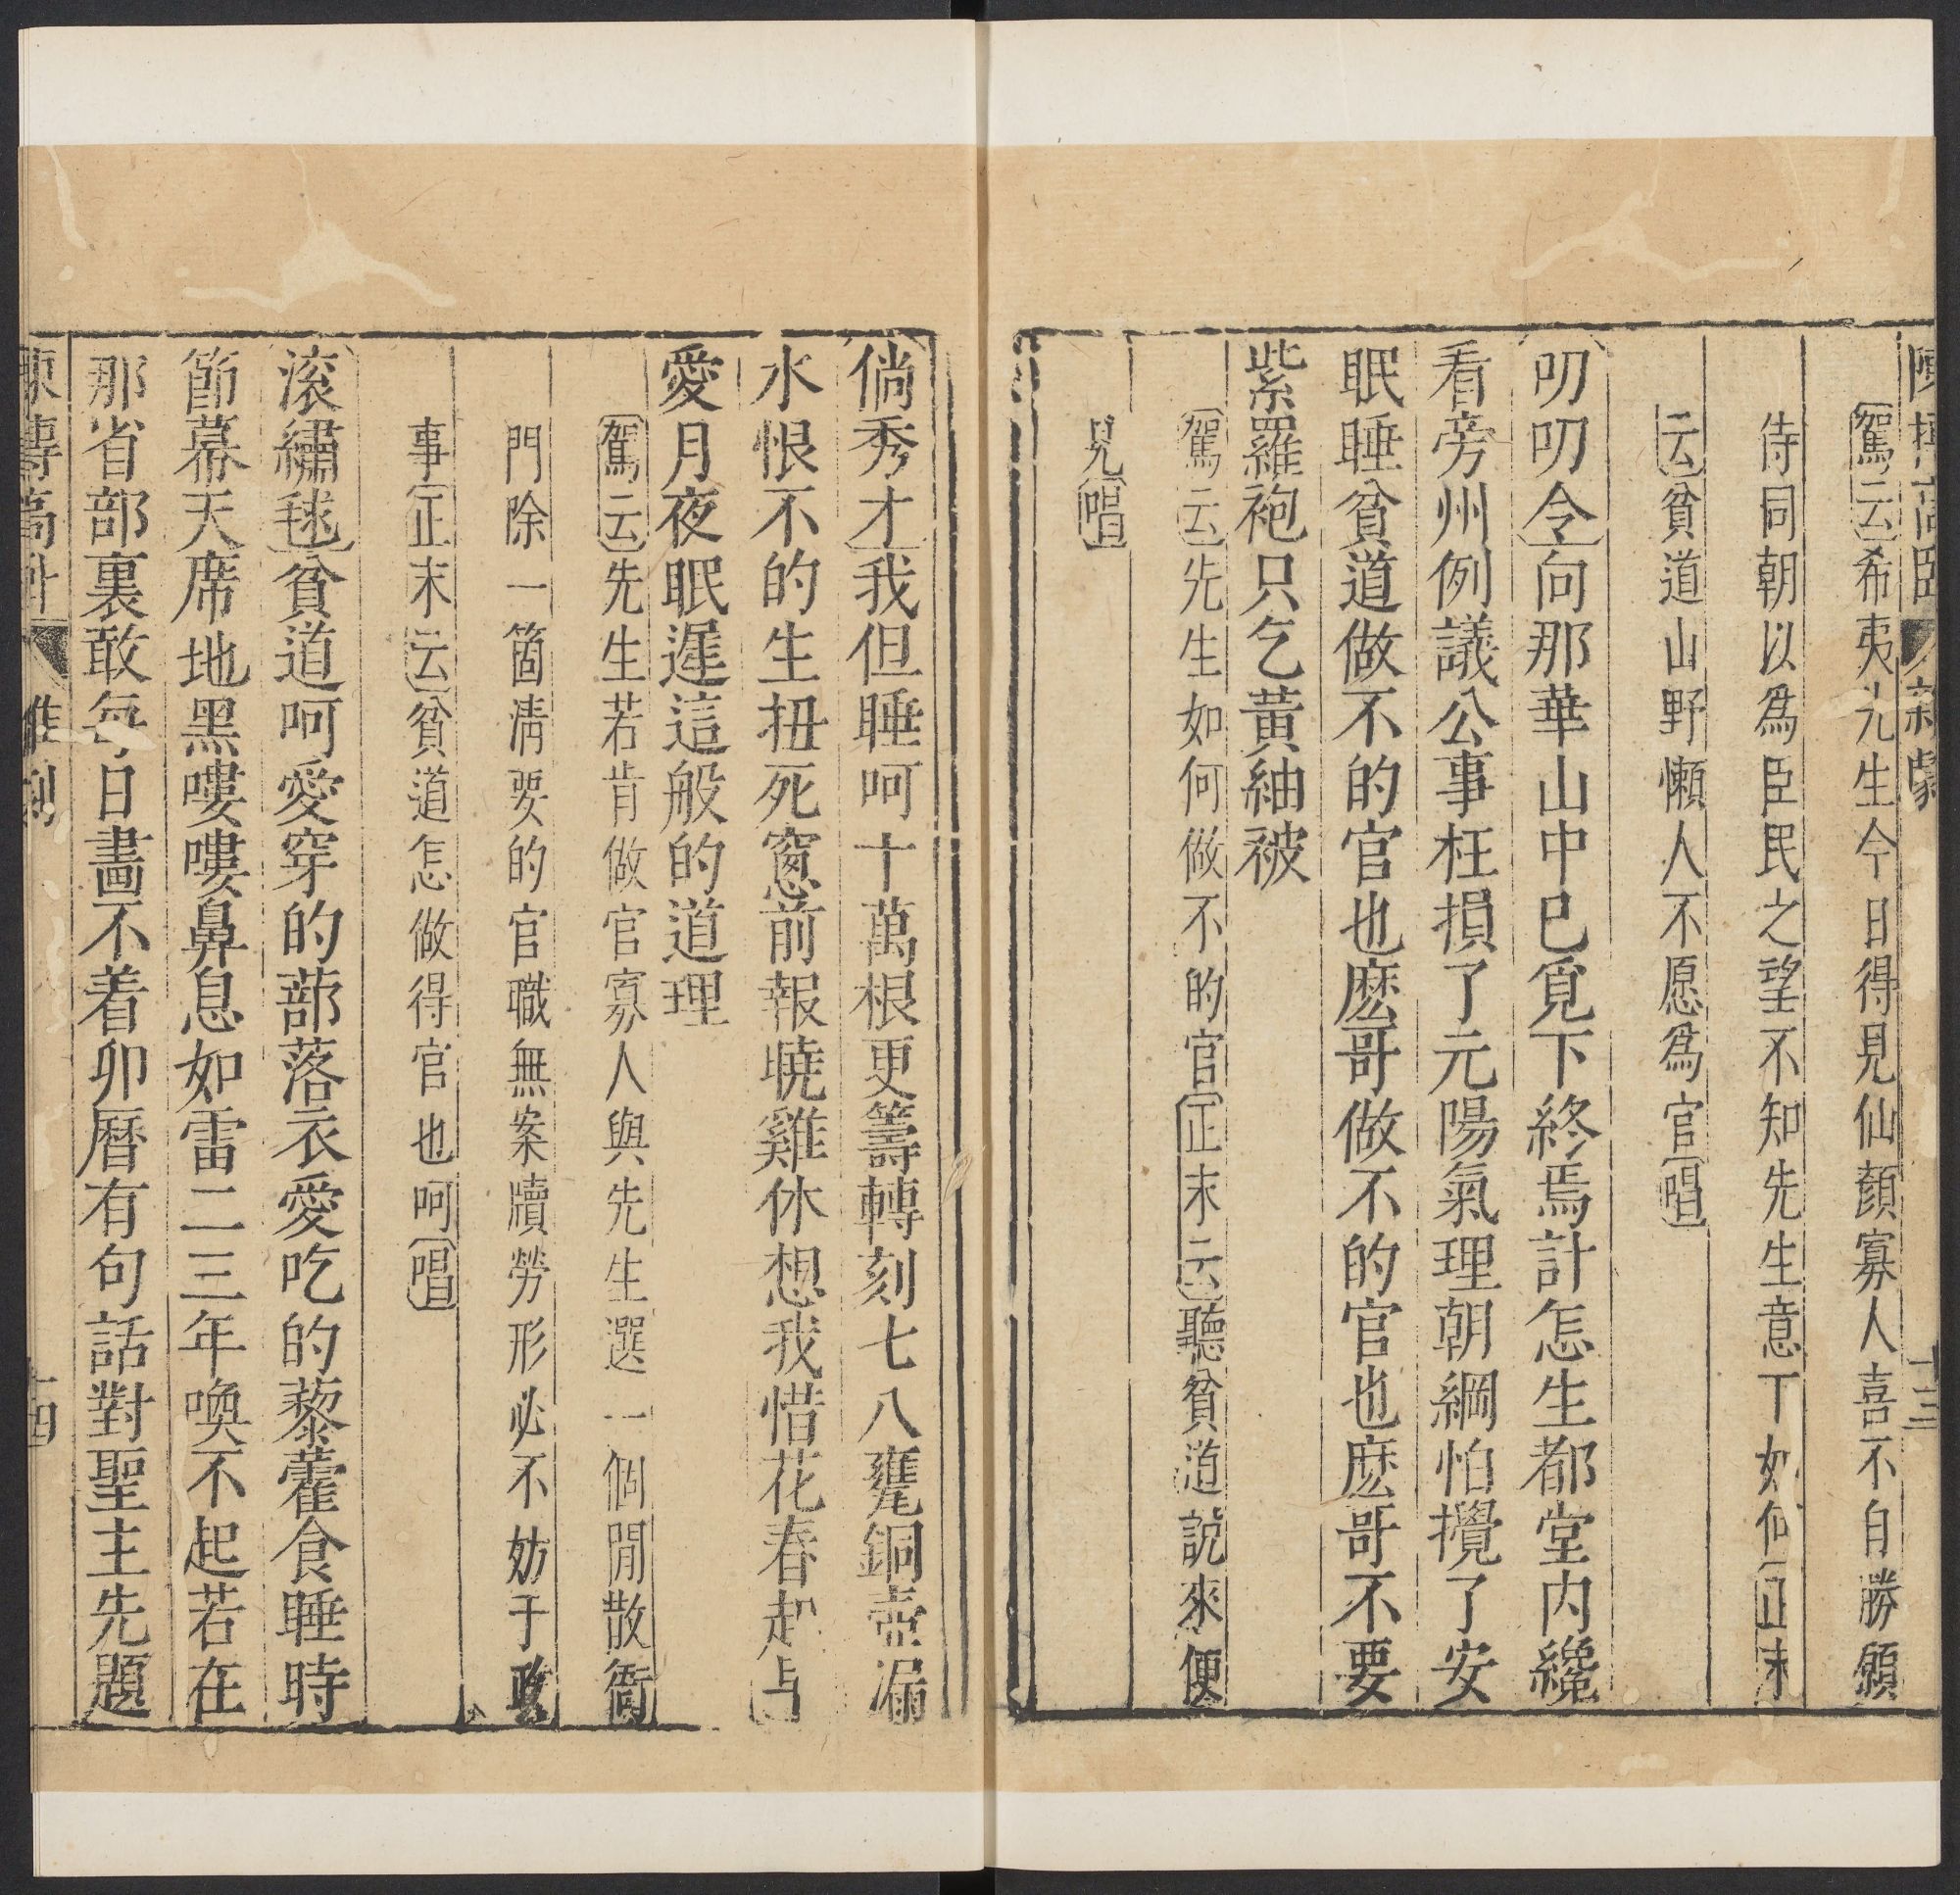 陳摶高臥 雜劇 十三
駕云希夷先生今日得見仙顏寡人喜不自勝願
侍同朝以為臣民之望不知先生意下如何正末
云貧道山野懶人不愿為官唱
叨叨令向那華山中已覓下終焉計怎生都堂内纔
看旁州例議公事枉損了元陽氣理朝綱怕攪了安
眠睡貧道做不的官也麽哥做不的官也麽哥不要
紫羅袍只乞黄紬被
駕云先生如何做不的官正末云聽貧道說來便
見唱
倘秀才我但睡呵十萬根更籌轉刻七八甕銅壺漏
水恨不的生扭死窓前報曉雞休想我惜花春起早
愛月夜眠遲這般的道理
駕云先生若肯做官寡人與先生選一個閒散衙
門除一箇清要的官職無案牘勞形必不妨于政
事正末云貧道怎做得官也呵唱
滚繡毬貧道呵愛穿的蔀落衣愛吃的藜藿食睡時
節幕天席地黑嘍嘍鼻息如雷二三年喚不起若在
那省部裏敢每日畫不着卯曆有句話對聖主先題
陳摶高臥 雜劇 十四